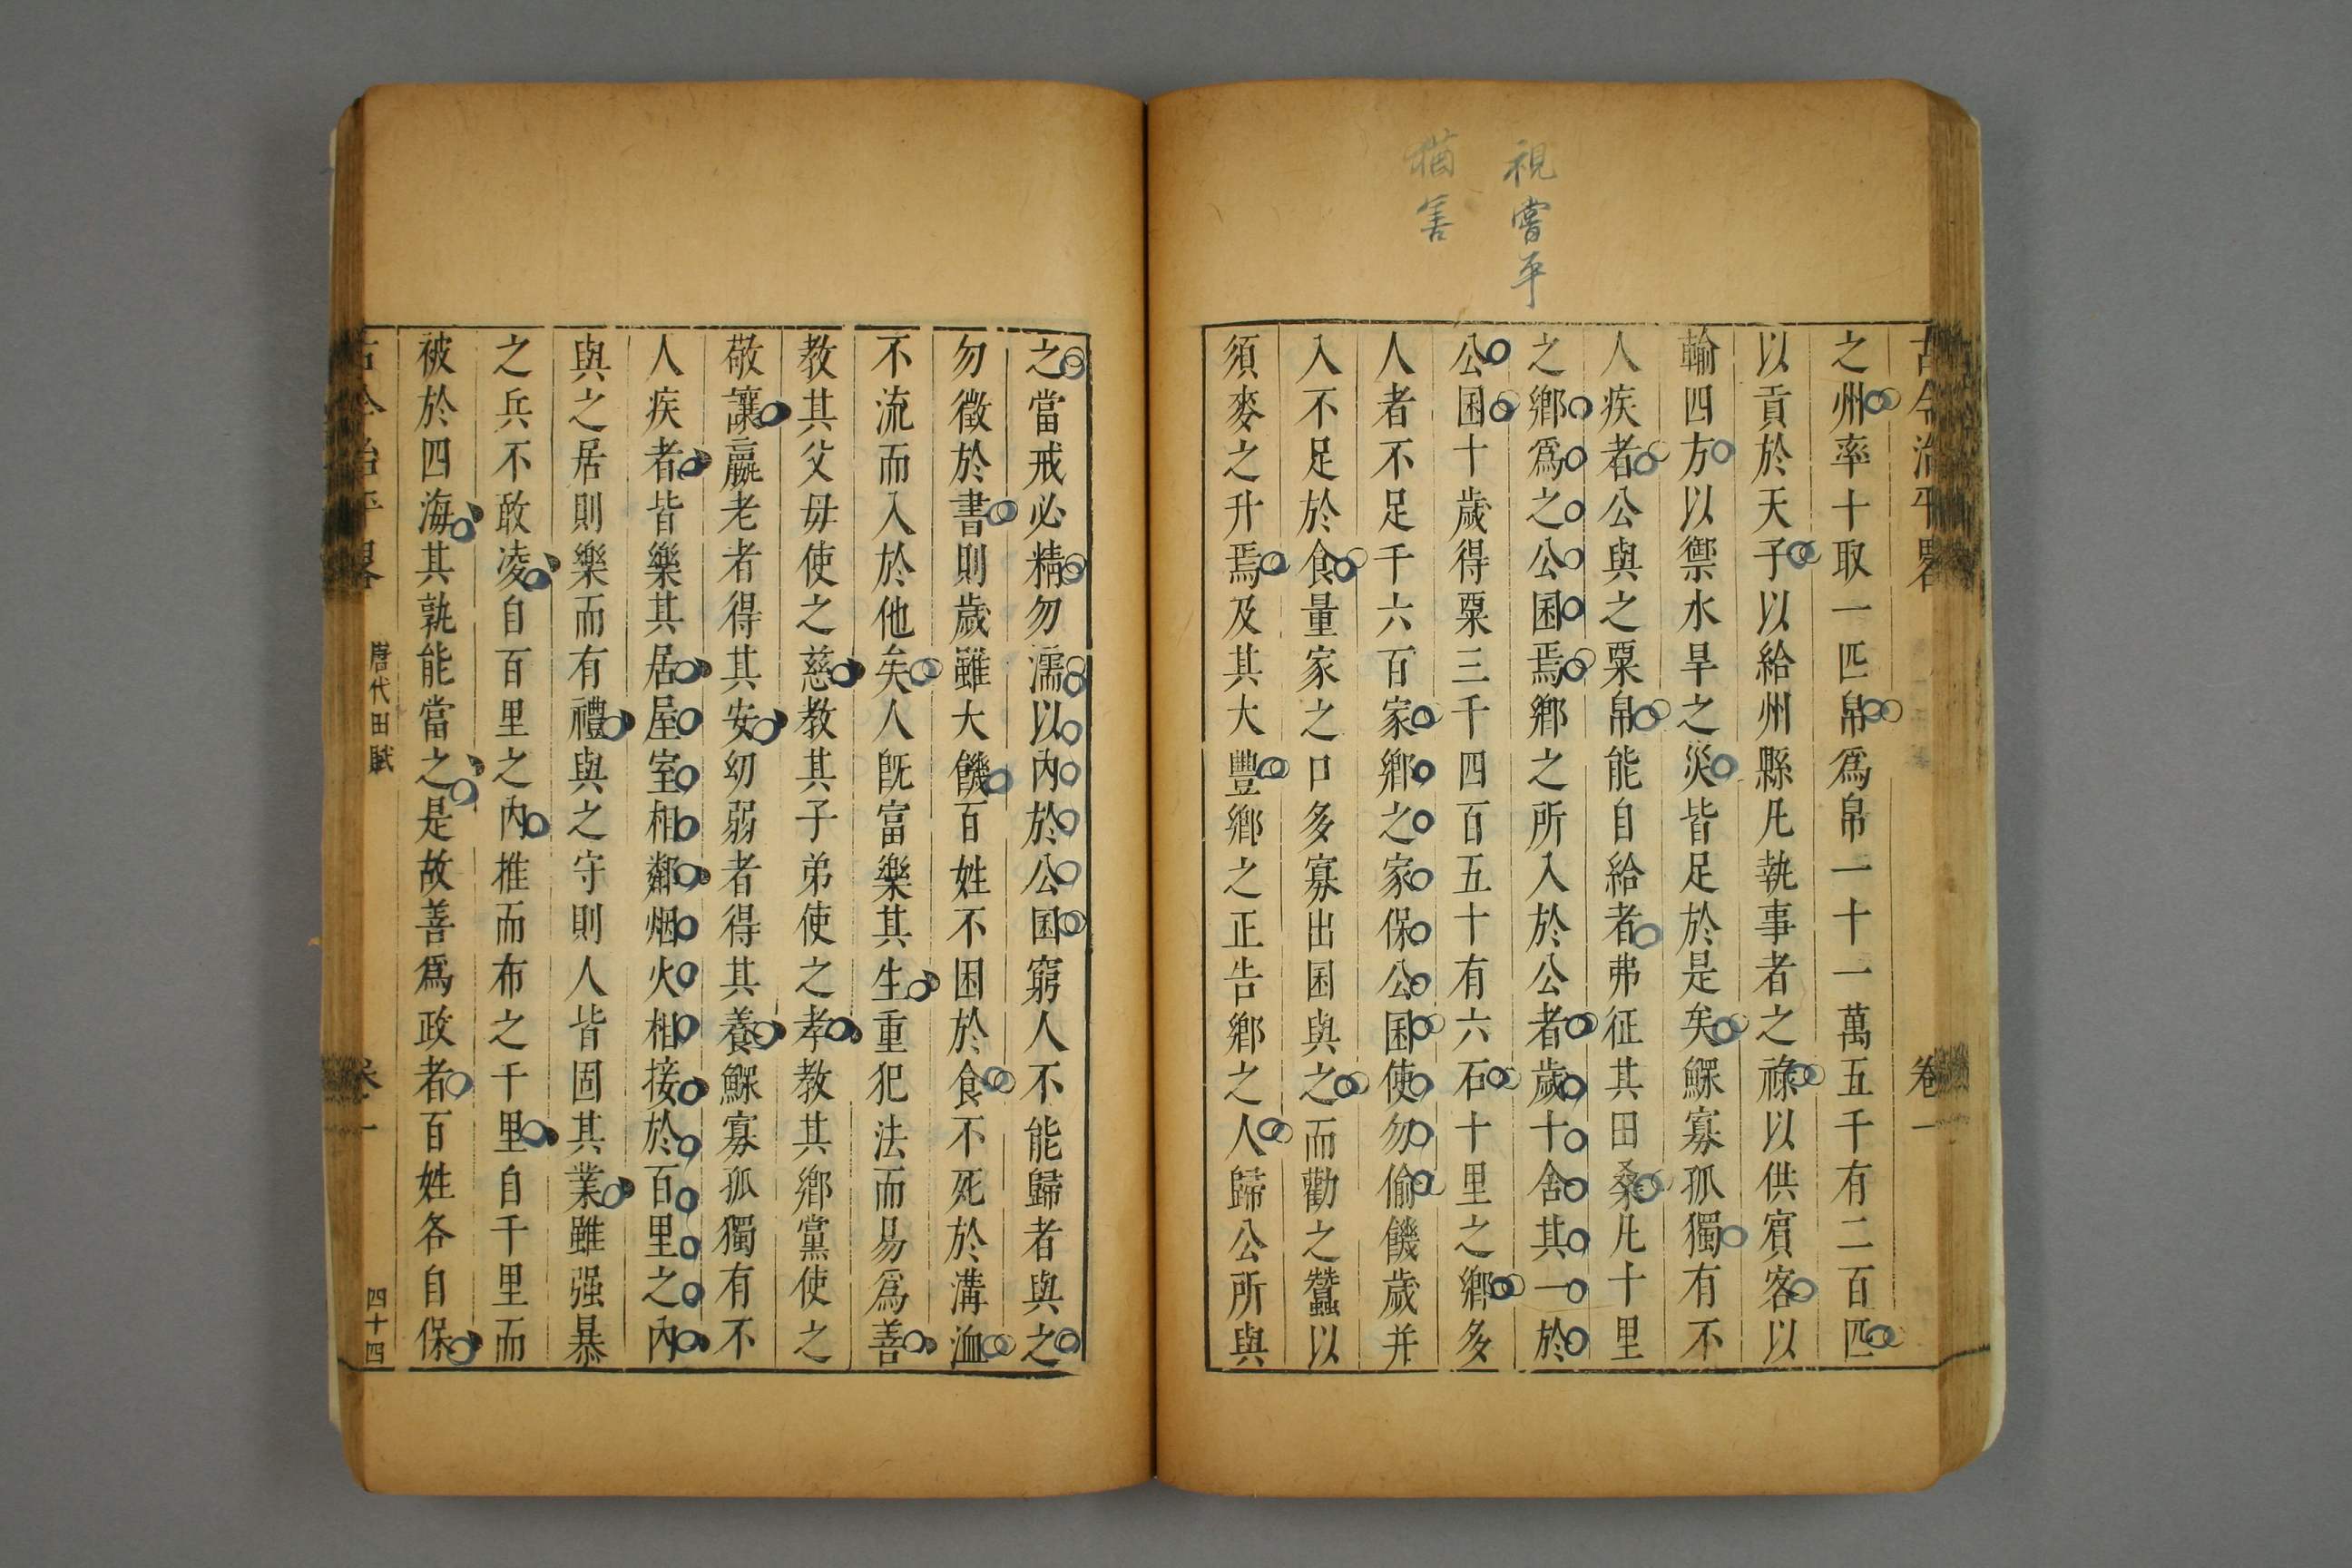 視嘗平
猶害
古今治平畧
卷一
之州率十取一匹帛爲帛一十一萬五千有二百匹
以貢於天子以給州縣凡執事者之祿以供賓客以
輸四方以禦水旱之災皆足於是矣鰥寡孤獨有不
人疾者公與之粟帛能自給者弗征其田桑凡十里
之鄉爲之公囷焉鄉之所入於公者歲十舍其一於
公囷十歲得粟三千四百五十有六石十里之鄉多
人者不足千六百家鄉之家保公囷使勿偷饑歲并
入不足於食量家之口多寡出囷與之而勸之蠶以
須麥之升焉及其大豐鄉之正告鄉之人歸公所與
之當戒必精勿濡以內於公囷窮人不能歸者與之
勿徵於書則歲雖大饑百姓不困於食不死於溝洫
不流而入於他矣人旣富樂其生重犯法而易爲善
教其父毋使之慈教其子弟使之孝教其鄉黨使之
敬讓羸老者得其安幼弱者得其養鰥寡孤獨有不
人疾者皆樂其居屋室相鄰烟火相接於百里之內
與之居則樂而有禮與之守則人皆固其業雖强暴
之兵不敢凌自百里之內推而布之千里自千里而
被於四海其孰能當之是故善爲政者百姓各自保
古今治平畧
唐代田賦
卷一
四十四